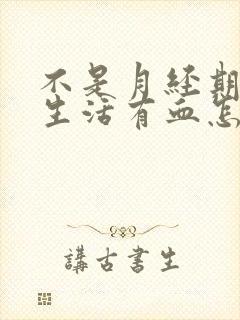 不是月经期
生活有血怎
講古書生